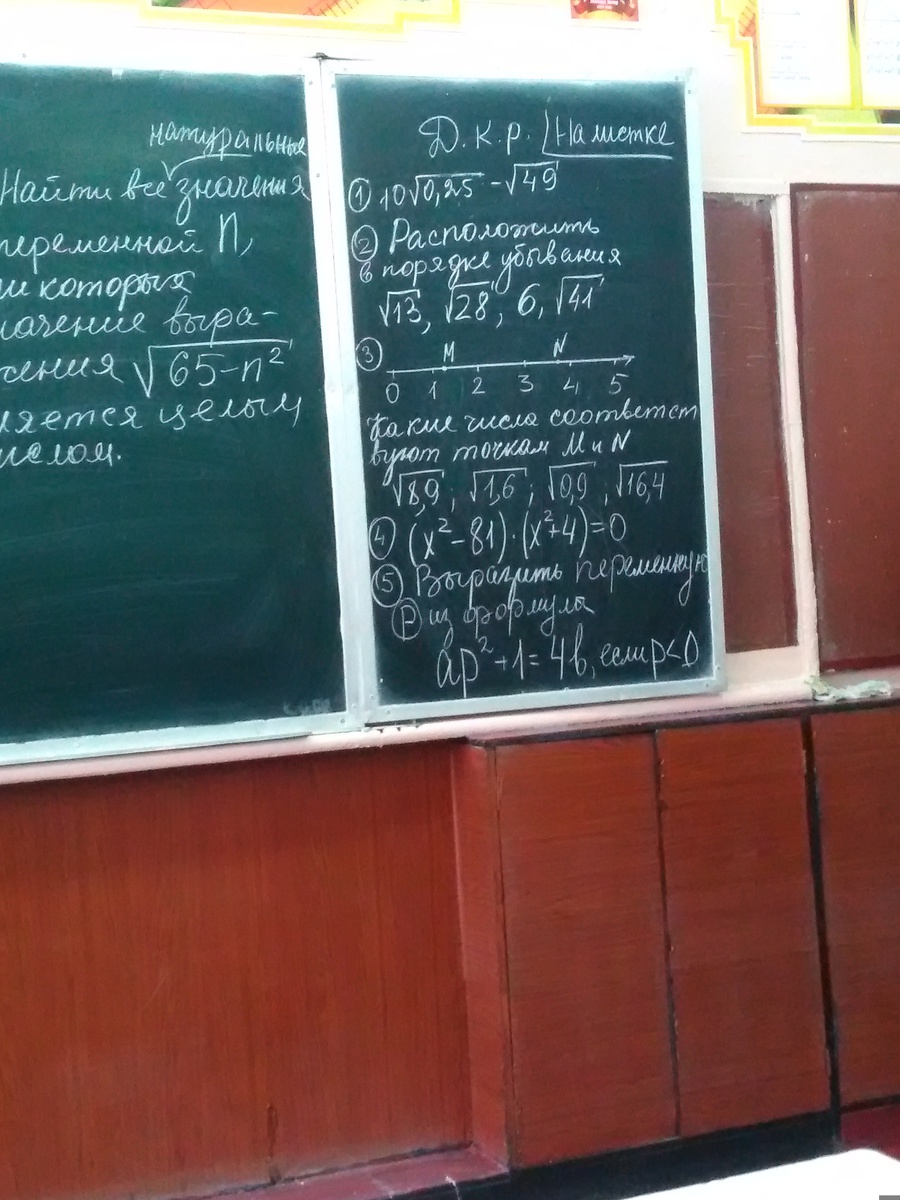 натуральные
Найти все значения
переменной n,
и которых
начение выра-
жения √65-n²
ляется целым
ислом.
Д.К.р. На листке
① 10√0,25 - √49
② Расположить
в порядке убывания
√13, √28, 6, √41
③ M N
0 1 2 3 4 5
Какие числа соответст
вуют точкам M и N
√8,9; √1,6; √0,9; √16,4
④ (x²-81)·(x²+4)=0
⑤ Выразить переменную
P из формулы
ap²+1=4b, если p<0